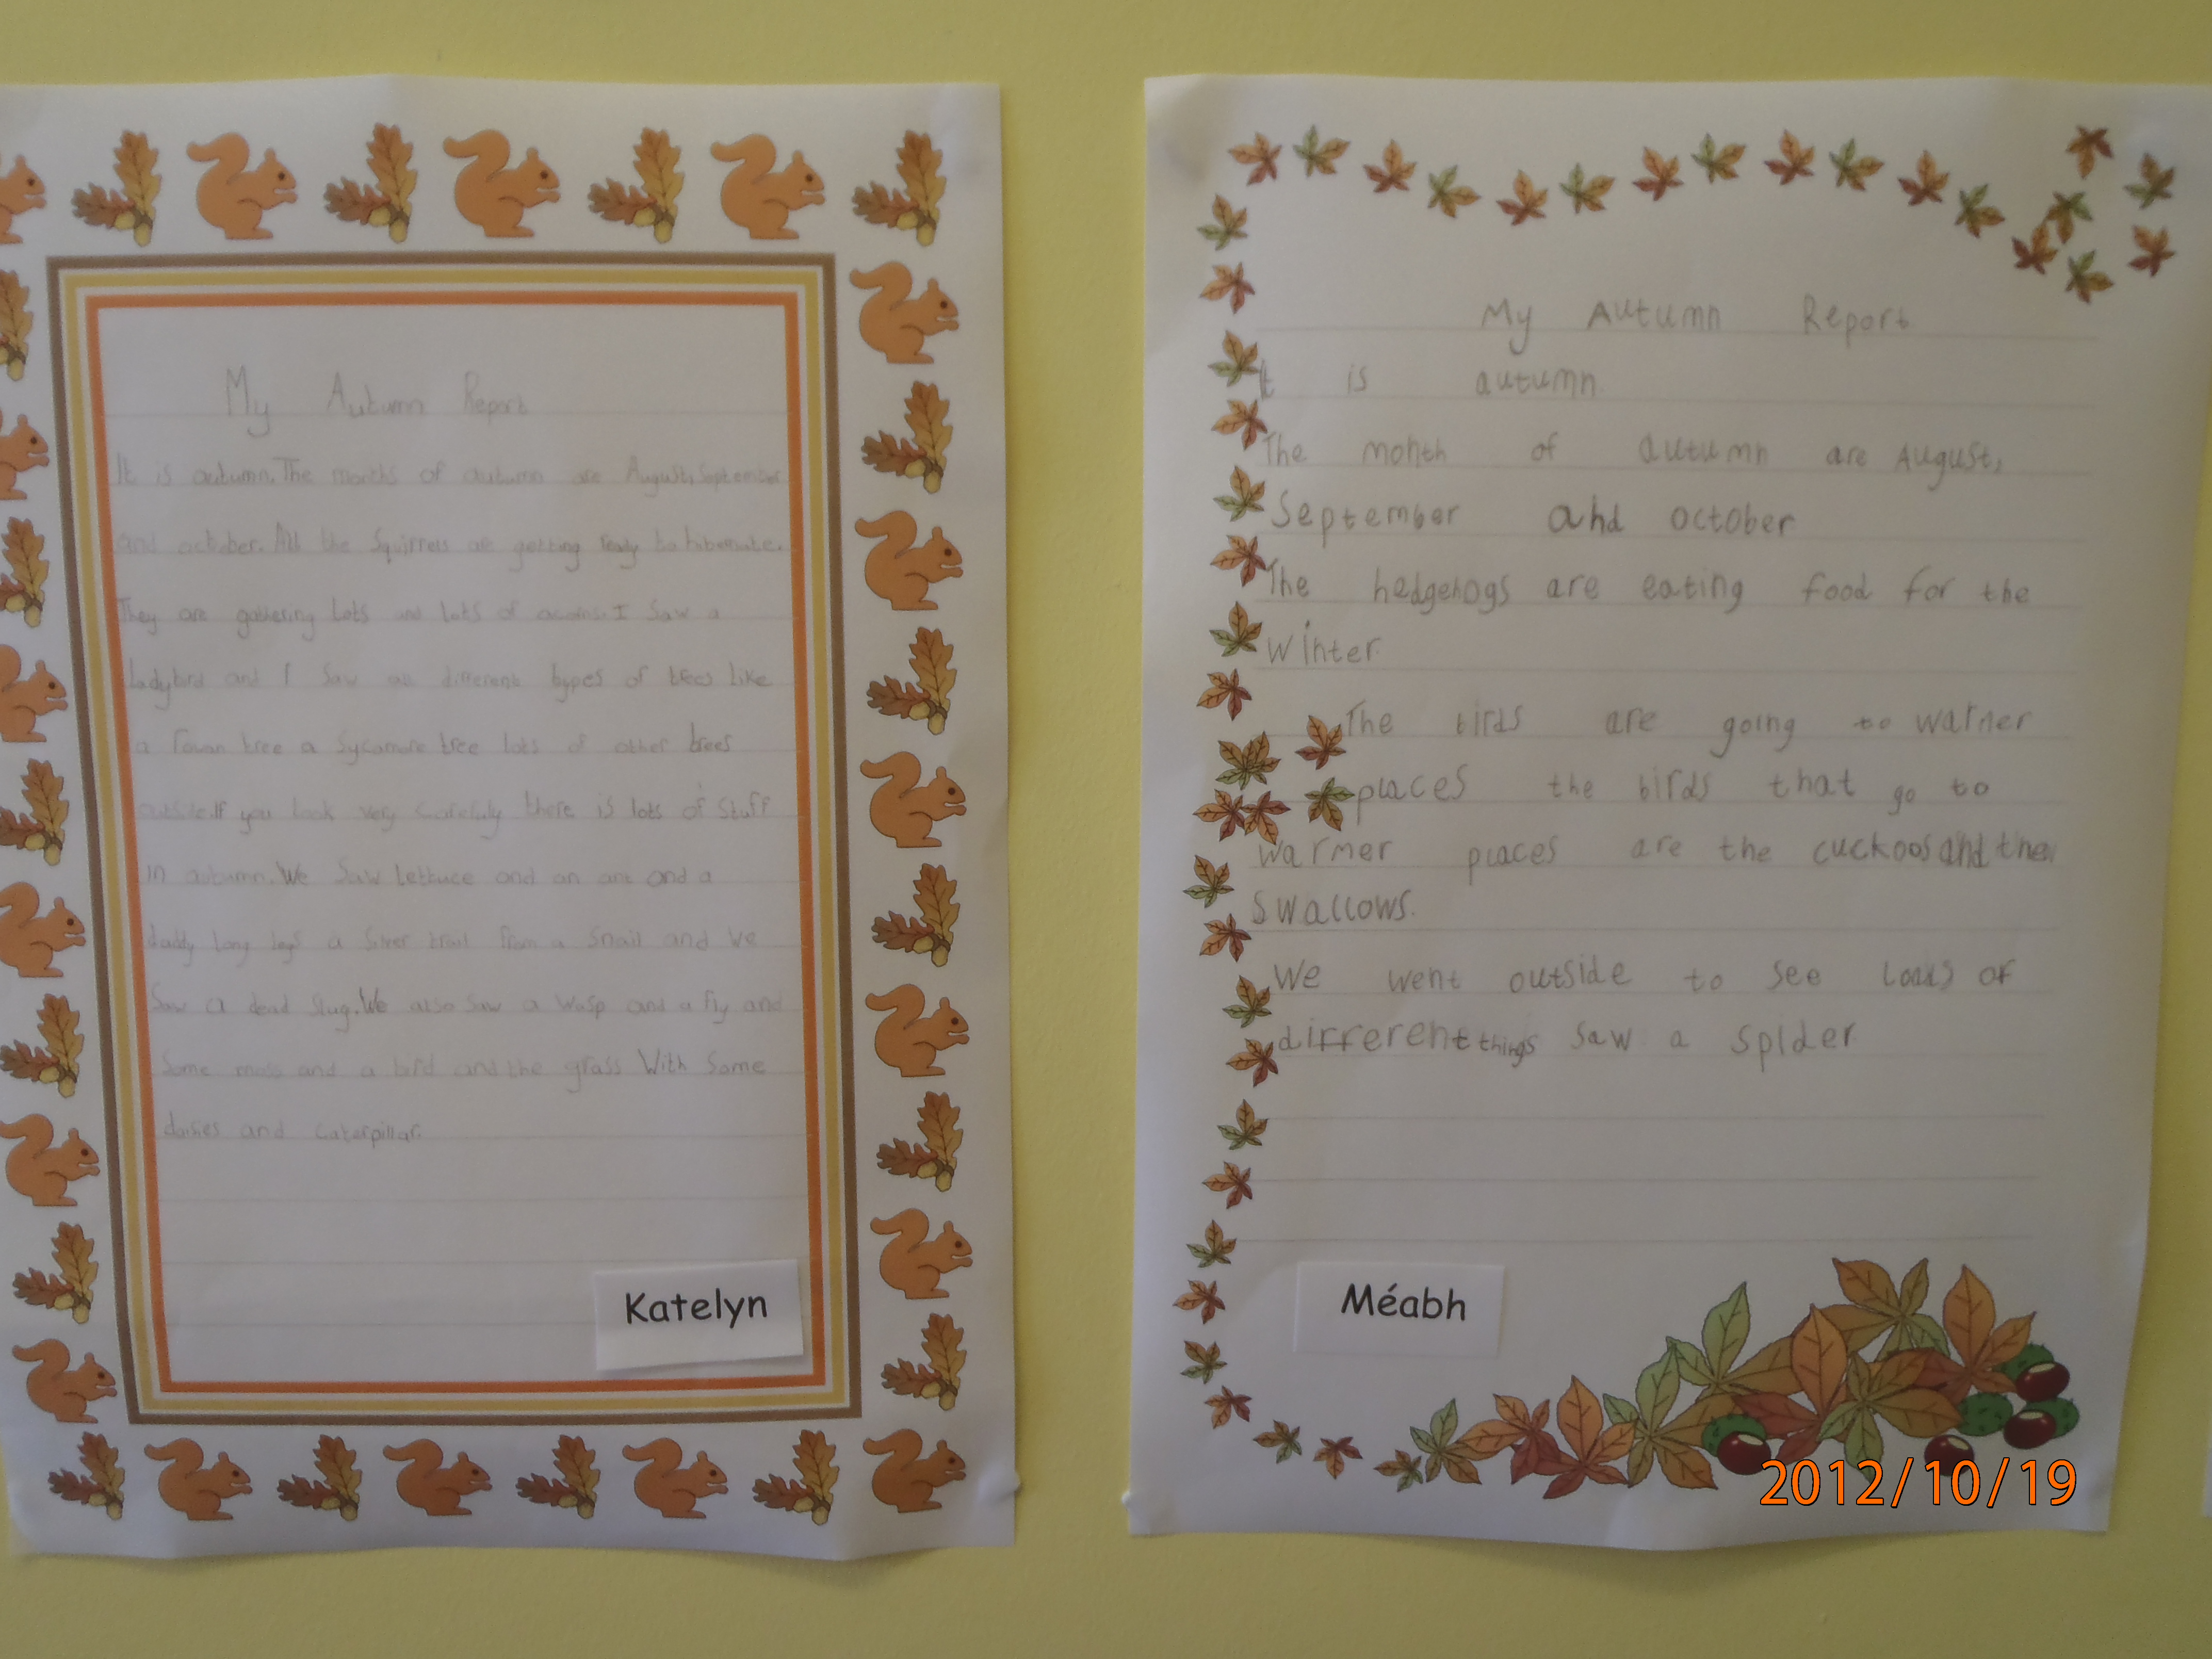 My Autumn Report
It is autumn. The months of autumn are August, September
and october. All the Squirrels are getting ready to hibernate.
They are gathering Lots and lots of acorns. I Saw a
Ladybird and I Saw different types of trees like
a rowan tree a Sycamore tree lots of other trees
outside. If you look very there is lots of Stuff
in autumn. We Saw Lettuce and an ant and a
daddy long legs a Silver trail from a Snail and We
Saw a dead Slug. We also Saw a Wasp and a Fly and
Some moss and a bird and the grass With Some
daisies and caterpillar.
Katelyn
My Autumn Report
It is autumn.
The month of autumn are August,
September and october
The hedgehogs are eating food for the
Winter.
The birds are going to warner
places the birds that go to
warmer places are the cuckoos and the
Swallows.
We went outside to see of
different things saw a spider
Méabh
2012/10/19